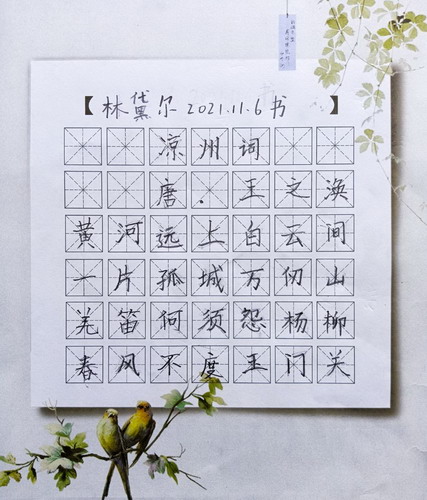 【林黛尔 2021.11.6书】
凉州词
唐.王之涣
黄河远上白云间
一片孤城万仞山
羌笛何须怨杨柳
春风不度玉门关